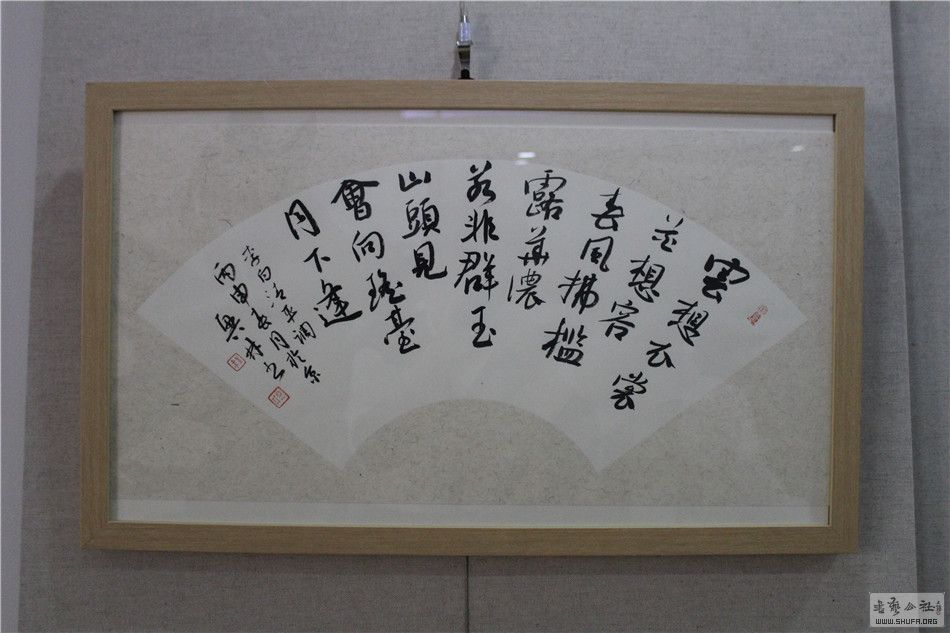 雲想衣裳
花想容
春風拂檻
露華濃
若非群玉
山頭見
會向瑤臺
月下逢
李白清平调於京
丙申春月
興书
書藝公社
WWW.SHUFA.ORG